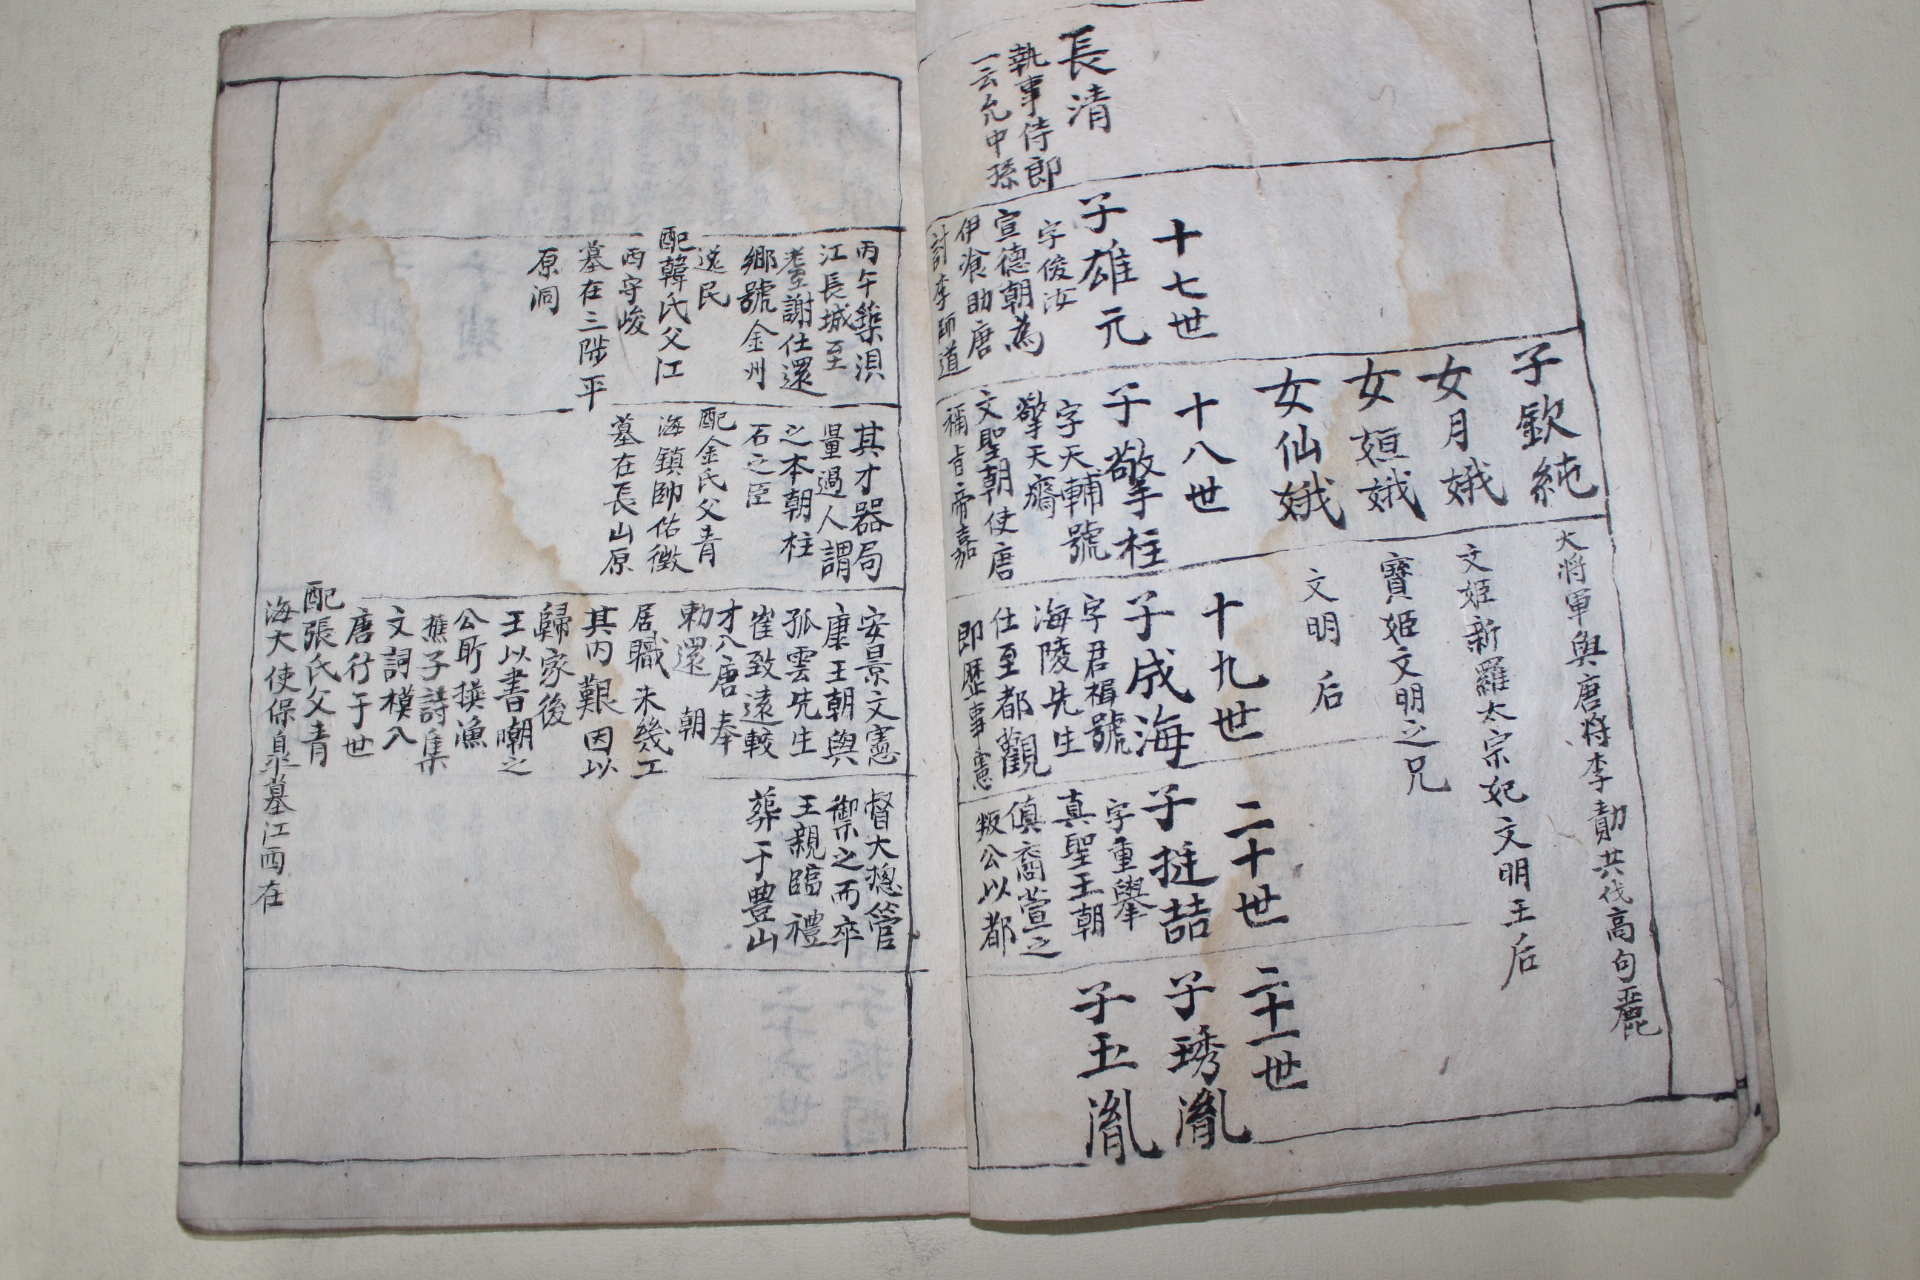 長清
執事侍郎
一云允中孫
十七世
子雄元
字俊汝
宣德朝為
伊飡助唐
討李師道
子欽純
女月娥
女姮娥
女仙娥
十八世
子擎柱
字天輔號
擎天齋
文聖朝使唐
稱旨帝嘉
大將軍與唐將李勣共伐高句麗
文姬新羅太宗妃文明王后
寶姬文明之兄
文明后
十九世
子成海
字君楫號
海陵先生
仕至都觀
即歷事憲
二十世
子挺喆
字重舉
真聖王朝
傎裔萱之
叛公以都
二十一世
子琇胤
子玉胤
丙午築浿
江長城至
耋謝仕還
鄉號金州
逸民
配韓氏父江
西守峻
墓在三陟平
原洞
其才器局
量過人謂
之本朝柱
石之臣
配金氏父青
海鎮帥佑徵
墓在長山原
安景文憲
康王朝與
孤雲先生
崔致遠較
才入唐奉
勅還朝
居職未幾工
其內艱因以
歸家後
王以書嘲之
公所撰漁
樵子詩集
文詞模入
唐行于世
配張氏父青
海大使保皐墓江西在
督大摠管
禦之而卒
王親臨禮
葬于豊山